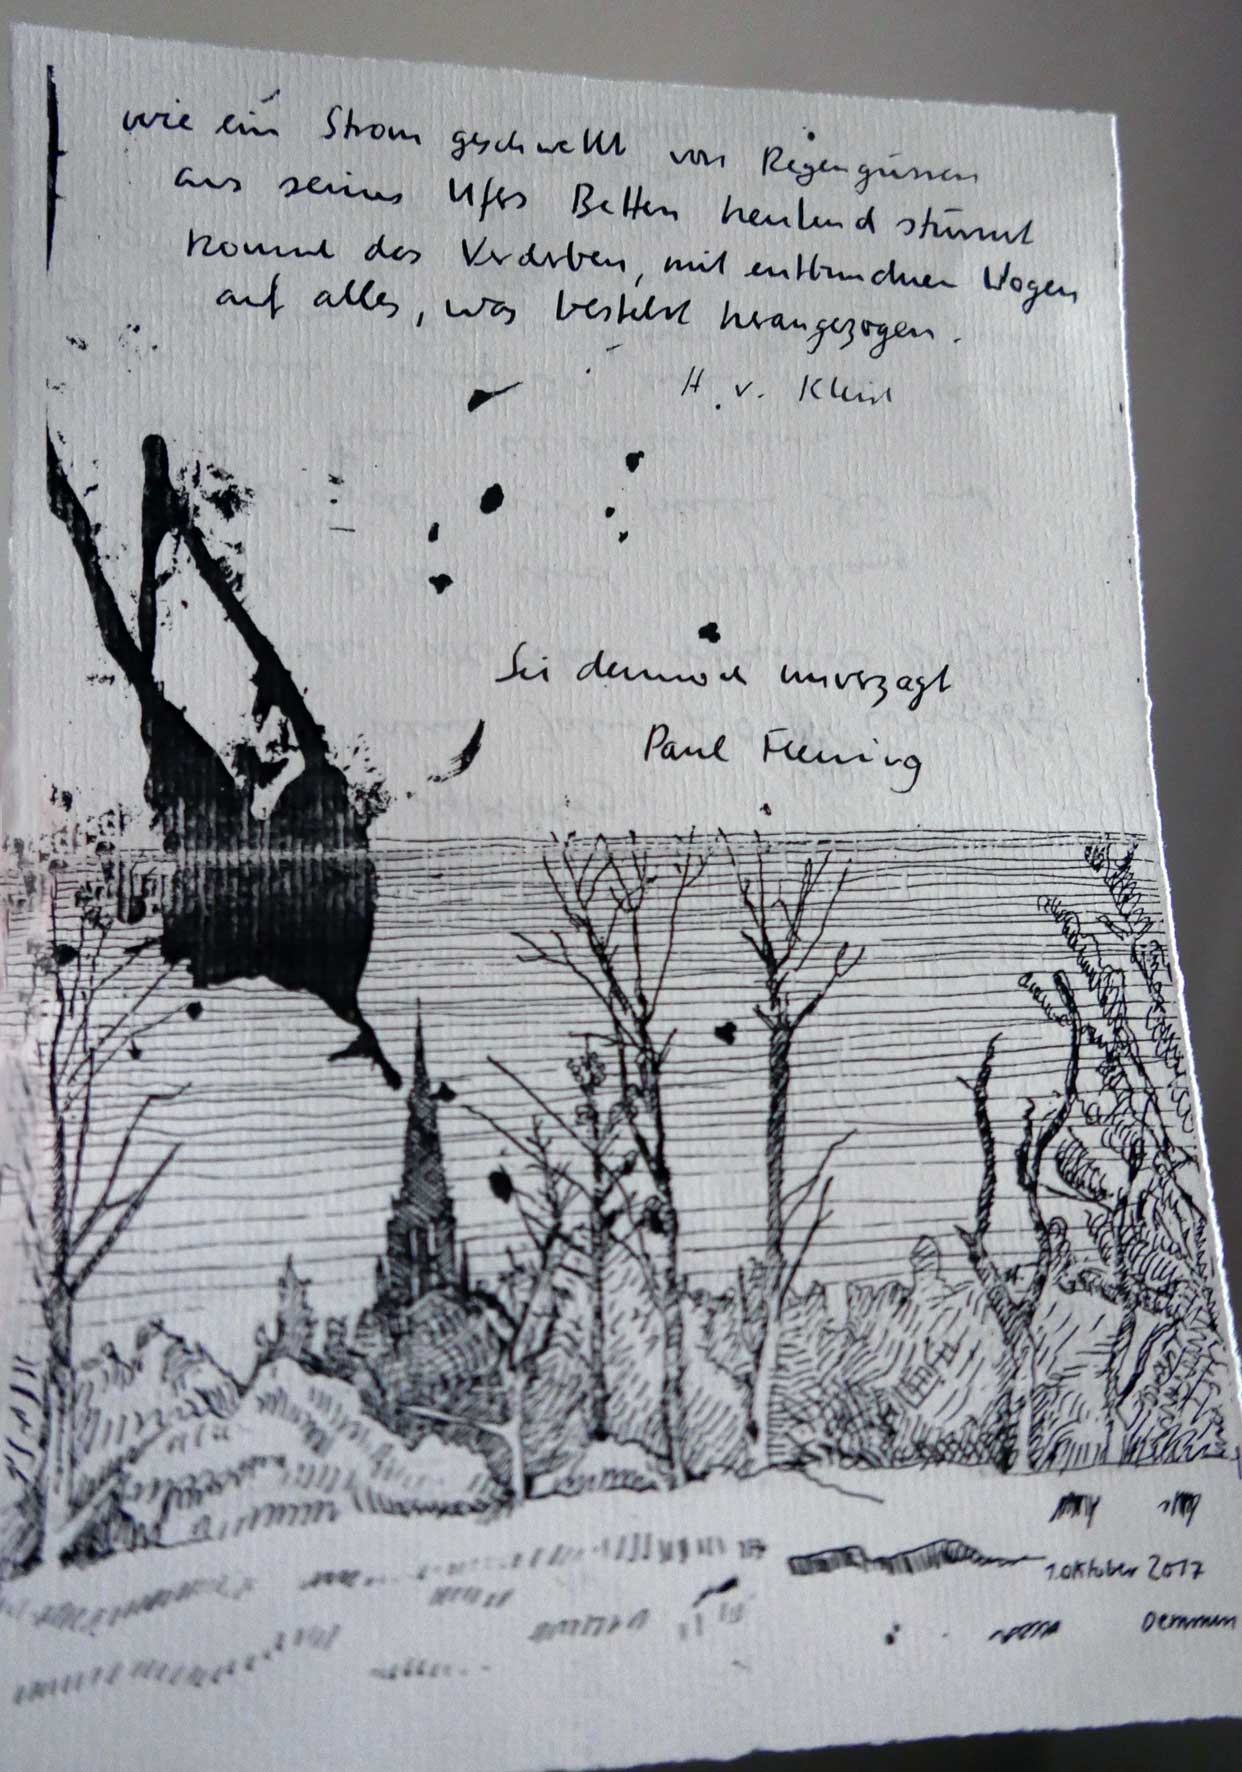 wie ein Strom geschwellt von Regengüssen
aus seines Ufers Betten heulend stürmt
kommt das Verderben, mit entbundnen Wogen
auf alles, was besteht herangezogen.
H. v. Kleist
Sei dennoch unverzagt
Paul Fleming
1. Oktober 2017
Demmin